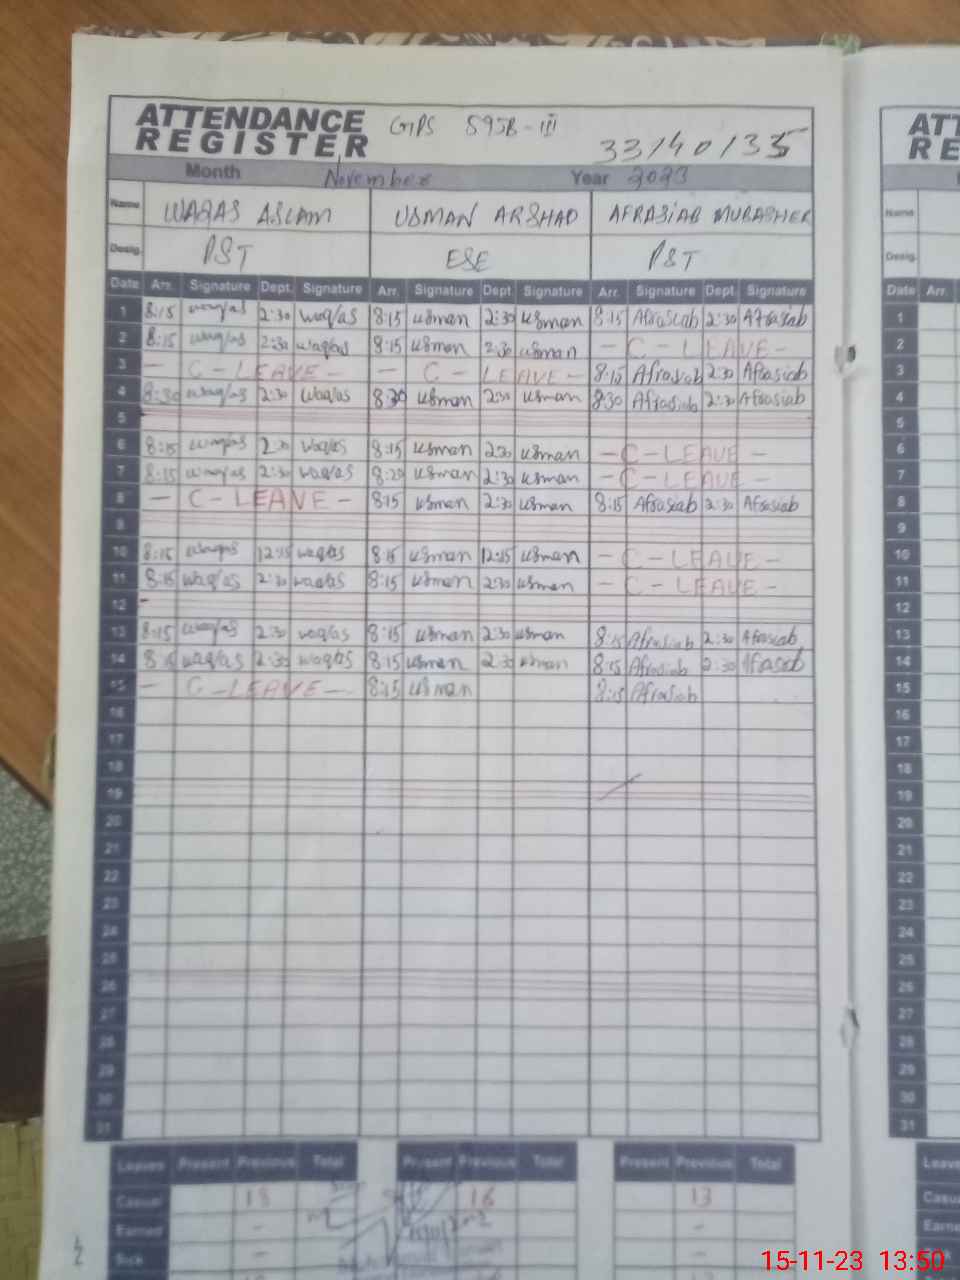 ATTENDANCE REGISTER GPS 595B-III 33140135
Month November Year 2023
Name WAQAS ASLAM USMAN ARSHAD AFRASIAB MUBASHER
Desig. PST ESE PST
Date Arr. Signature Dept. Signature Arr. Signature Dept. Signature Arr. Signature Dept. Signature
1 8:15 waq/as 2:30 waq/as 8:15 usman 2:30 usman 8:15 Afrasiab 2:30 Afrasiab
2 8:15 waq/as 2:30 waq/as 8:15 usman 2:30 usman - C - LEAVE -
3 - C - LEAVE - - C - LEAVE - 8:15 Afrasiab 2:30 Afrasiab
4 8:30 waq/as 2:30 waq/as 8:30 usman 2:30 usman 8:30 Afrasiab 2:30 Afrasiab
5
6 8:15 waq/as 2:30 waq/as 8:15 usman 2:30 usman - C - LEAVE -
7 8:15 waq/as 2:30 waq/as 8:20 usman 2:30 usman - C - LEAVE -
8 - C - LEAVE - 8:15 usman 2:30 usman 8:15 Afrasiab 2:30 Afrasiab
9
10 8:15 waqas 12:15 waq/as 8:15 usman 12:15 usman - C - LEAVE -
11 8:15 waq/as 2:30 waq/as 8:15 usman 2:30 usman - C - LEAVE -
12
13 8:15 waq/as 2:30 waq/as 8:15 usman 2:30 usman 8:15 Afrasiab 2:30 Afrasiab
14 8:15 waq/as 2:30 waq/as 8:15 usman 2:30 usman 8:15 Afrasiab 2:30 Afrasiab
15 - C - LEAVE - 8:15 usman 8:15 Afrasiab
16
17
18
19
20
21
22
23
24
25
26
27
28
29
30
31
Leaves Present Previous Total Present Previous Total Present Previous Total
Casual 18 16 13
Earned - -
Sick - -
ATT
RE
Name
Desig.
Date Arr.
1
2
3
4
5
6
7
8
9
10
11
12
13
14
15
16
17
18
19
20
21
22
23
24
25
26
27
28
29
30
31
Leave
Casu
Earne
Sick
15-11-23 13:50